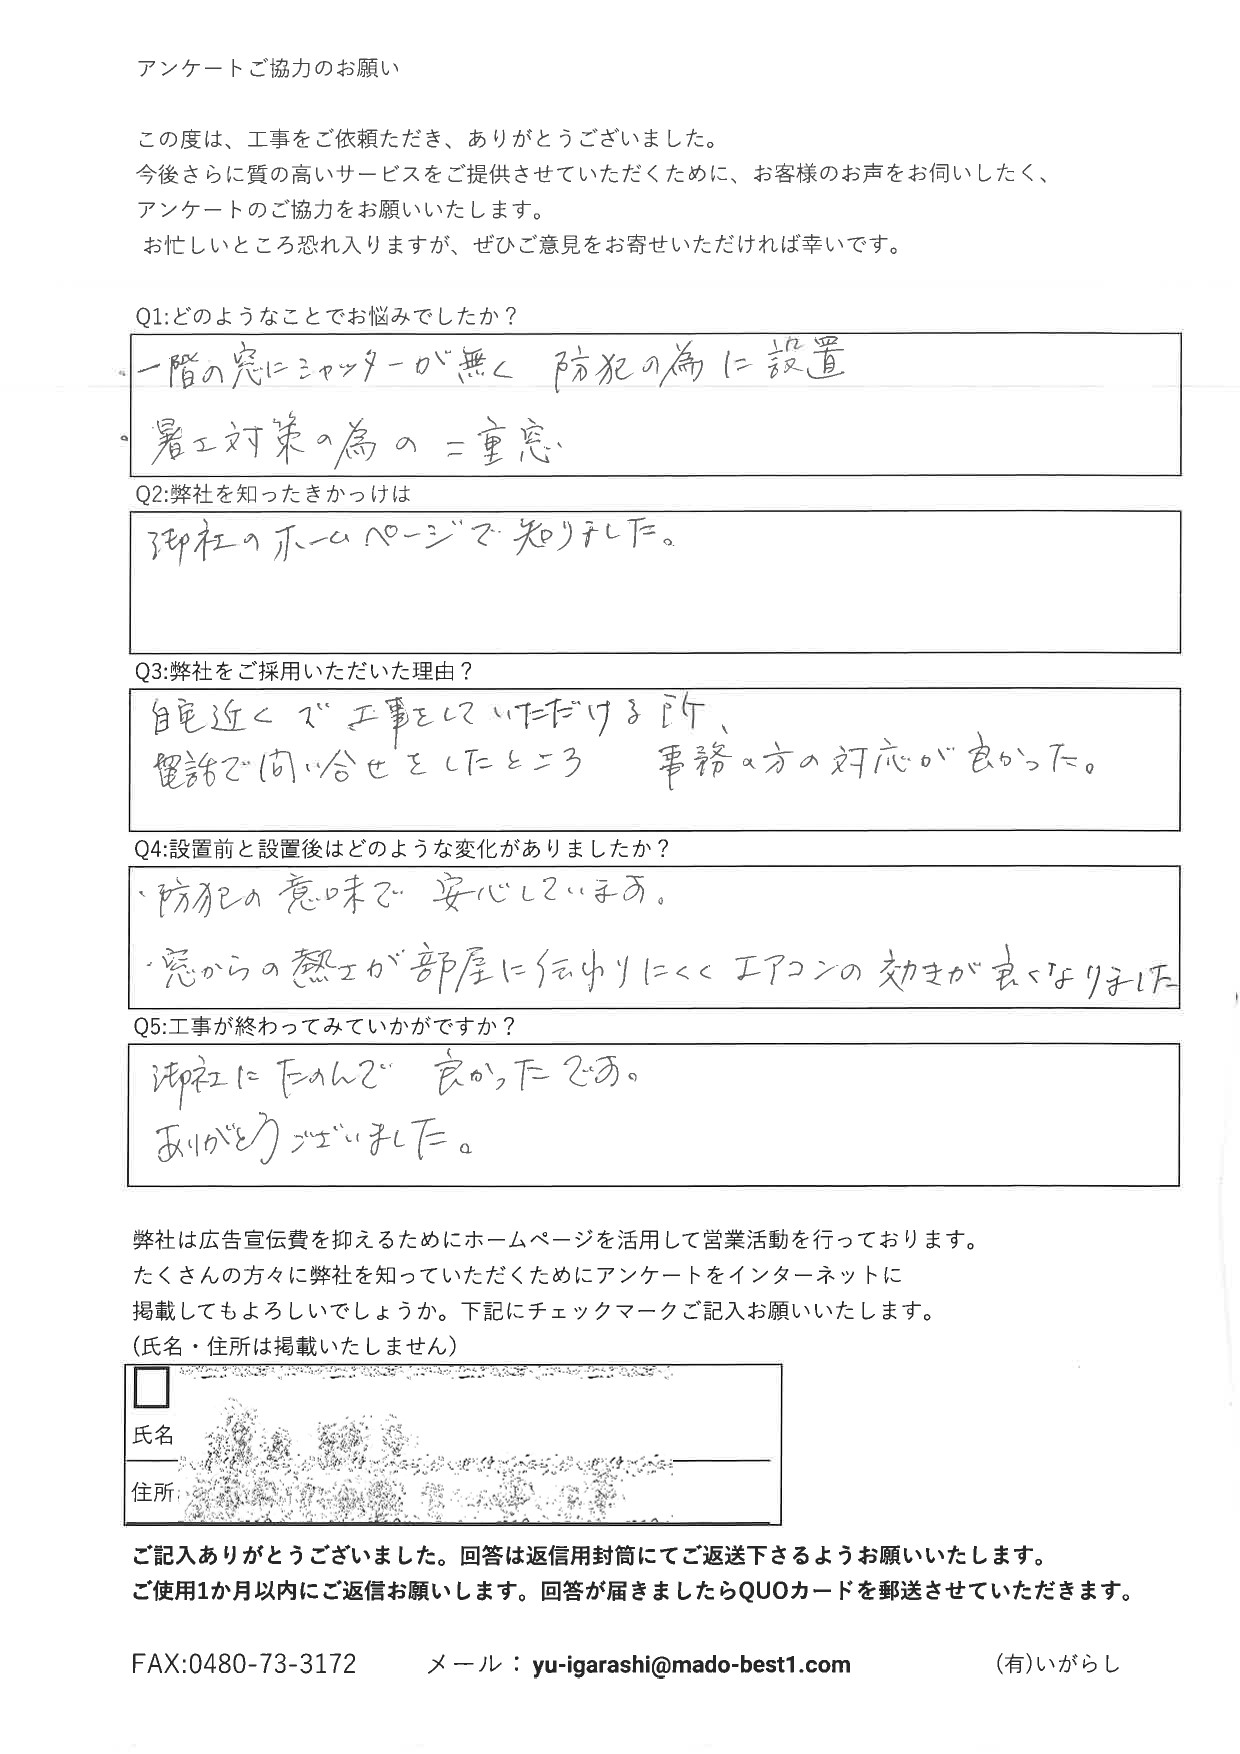 アンケートご協力のお願い
この度は、工事をご依頼ただき、ありがとうございました。
今後さらに質の高いサービスをご提供させていただくために、お客様のお声をお伺いしたく、
アンケートのご協力をお願いいたします。
お忙しいところ恐れ入りますが、ぜひご意見をお寄せいただければ幸いです。
Q1:どのようなことでお悩みでしたか？
・一階の窓にシャッターが無く 防犯の為に設置
・暑エ対策の為の二重窓
Q2:弊社を知ったきかっけは
御社のホームページで知りました。
Q3:弊社をご採用いただいた理由？
自宅近くで工事をしていただける所、
電話で問い合せをしたところ 事務の方の対応が良かった。
Q4:設置前と設置後はどのような変化がありましたか？
・防犯の意味で 安心しています。
・窓からの熱さが部屋に伝わりにくくエアコンの効きが良くなりました
Q5:工事が終わってみていかがですか？
御社にたのんで 良かったです。
ありがとうございました。
弊社は広告宣伝費を抑えるためにホームページを活用して営業活動を行っております。
たくさんの方々に弊社を知っていただくためにアンケートをインターネットに
掲載してもよろしいでしょうか。下記にチェックマークご記入お願いいたします。
(氏名・住所は掲載いたしません）
氏名
住所
ご記入ありがとうございました。回答は返信用封筒にてご返送下さるようお願いいたします。
ご使用1か月以内にご返信お願いします。回答が届きましたらQUOカードを郵送させていただきます。
FAX:0480-73-3172 メール：yu-igarashi@mado-best1.com (有)いがらし